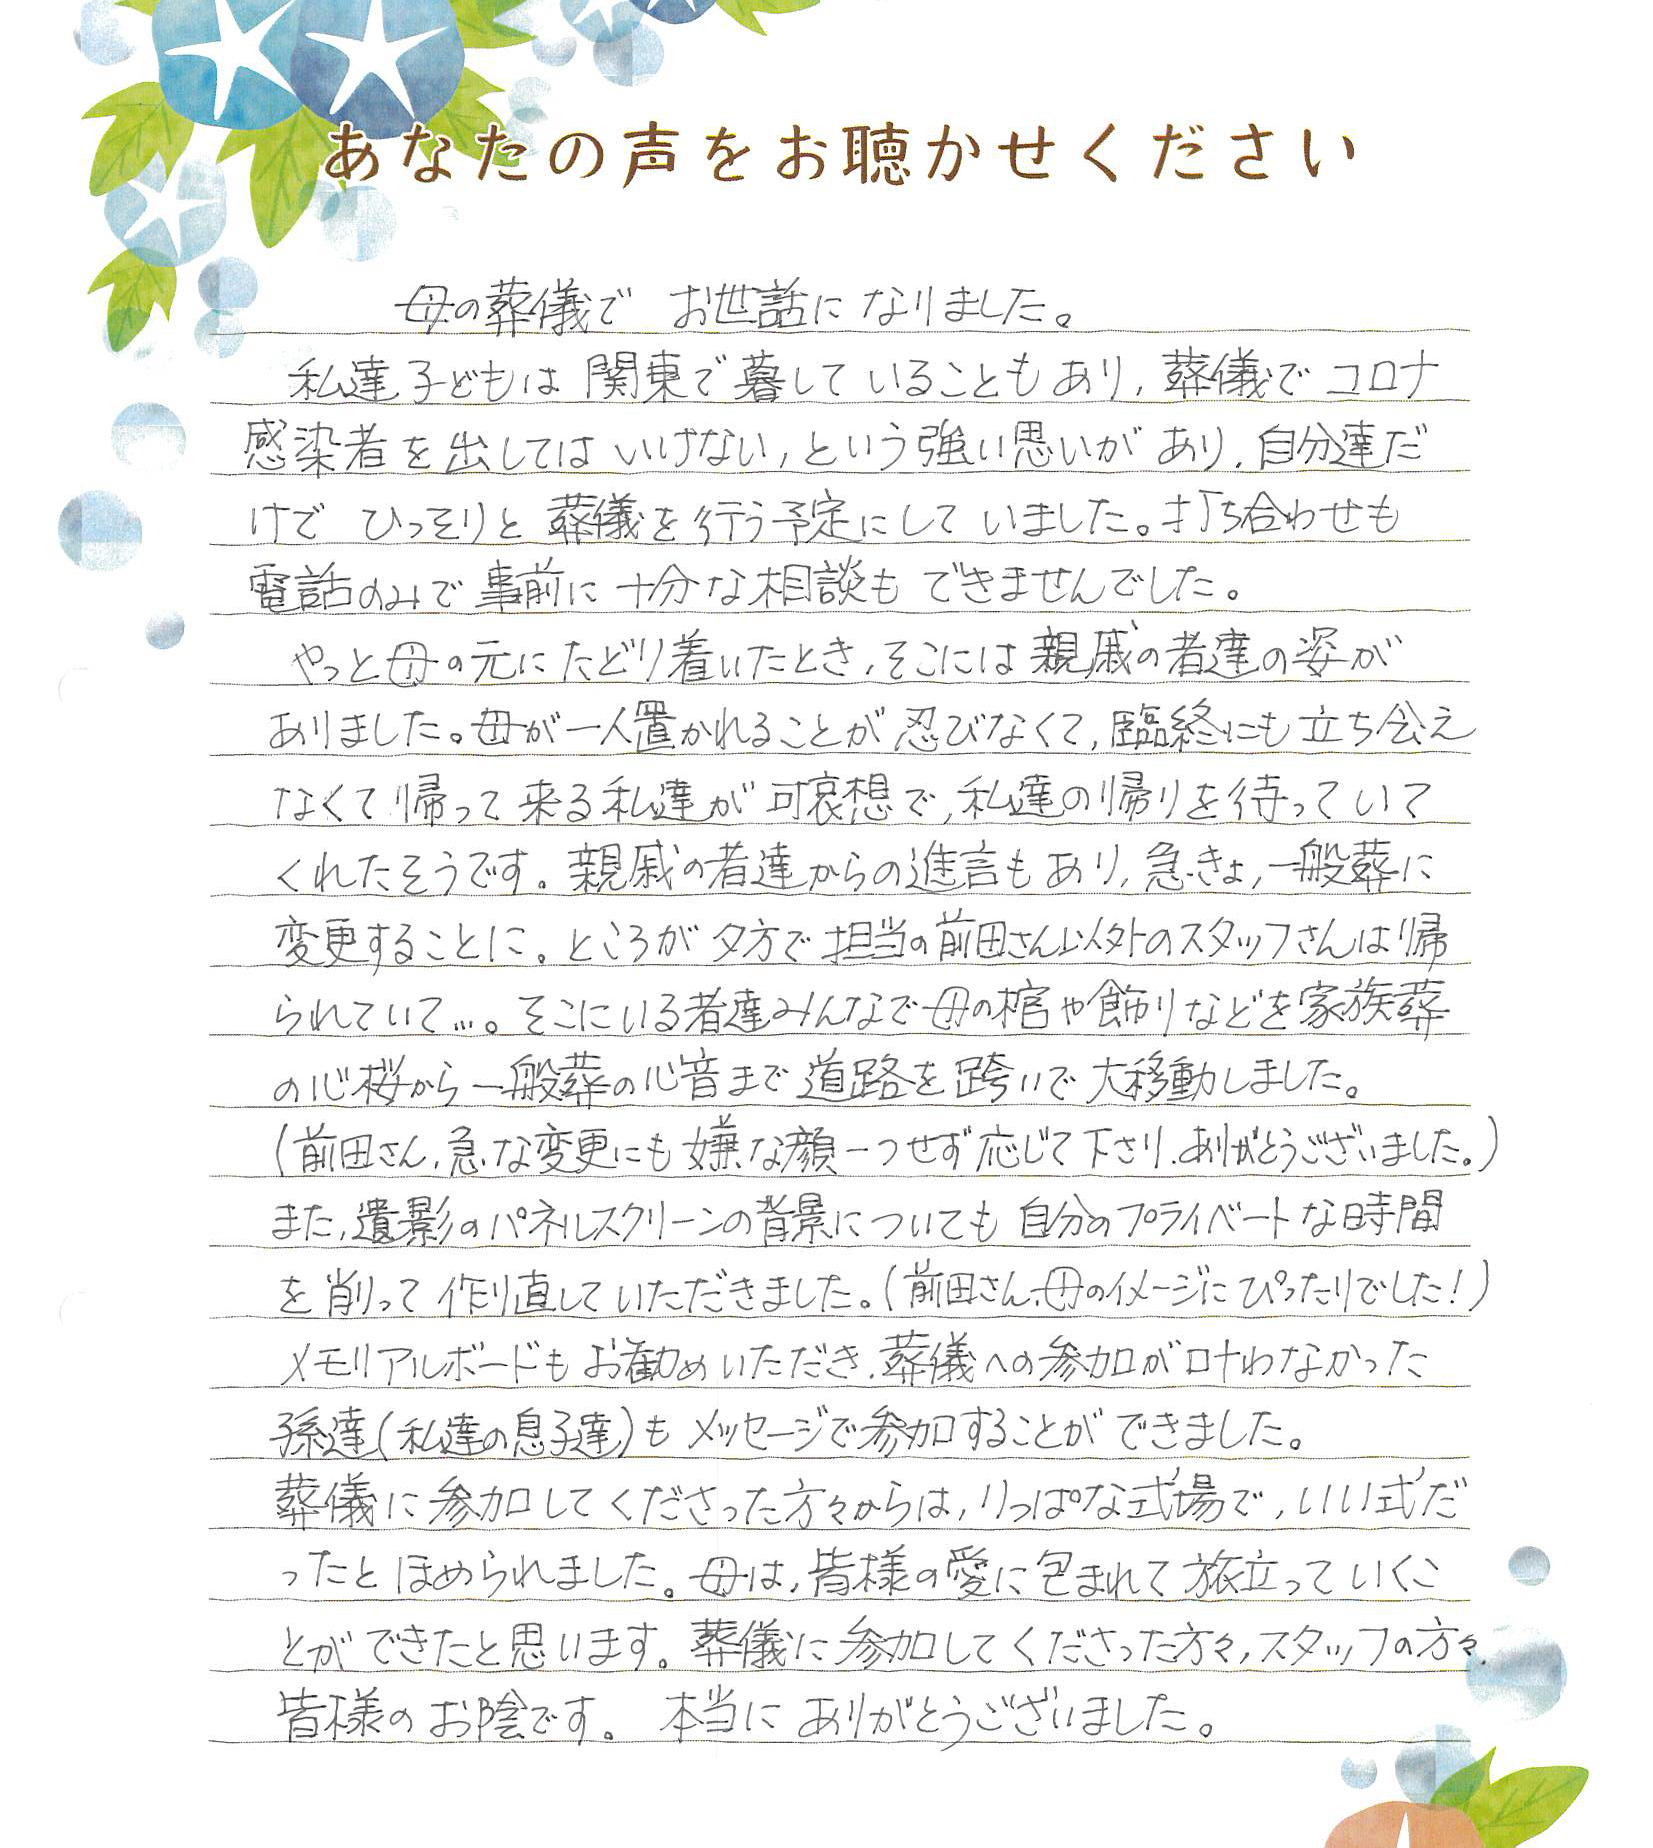 あなたの声をお聴かせください
母の葬儀で お世話になりました。
私達子どもは関東で暮していることもあり、葬儀でコロナ
感染者を出してはいけない、という強い思いがあり、自分達だ
けで ひっそりと 葬儀を行う予定にしていました。打ち合わせも
電話のみで事前に十分な相談もできませんでした。
やっと母の元にたどり着いたとき、そこには親戚の者達の姿が
ありました。母が一人置かれることが忍びなくて、臨終にも立ち会え
なくて帰って来る私達が可哀想で、私達の帰りを待っていて
くれたそうです。親戚の者達からの進言もあり、急きょ、一般葬に
変更することに。ところが夕方で担当の前田さん以外のスタッフさんは帰
られていて…。そこにいる者達みんなで母の棺や飾りなどを家族葬
の心桜から一般葬の心音まで道路を跨いで大移動しました。
(前田さん、急な変更にも嫌な顔一つせず応じて下さり、ありがとうございました。)
また、遺影のパネルスクリーンの背景についても自分のプライベートな時間
を削って作り直していただきました。(前田さん、母のイメージにぴったりでした!)
メモリアルボードもお勧めいただき、葬儀への参加が叶わなかった
孫達(私達の息子達)もメッセージで参加することができました。
葬儀に参加してくださった方々からは、りっぱな式場で、いい式だ
ったとほめられました。母は、皆様の愛に包まれて旅立っていくこ
とができたと思います。葬儀に参加してくださった方々、スタッフの方々、
皆様のお陰です。 本当にありがとうございました。